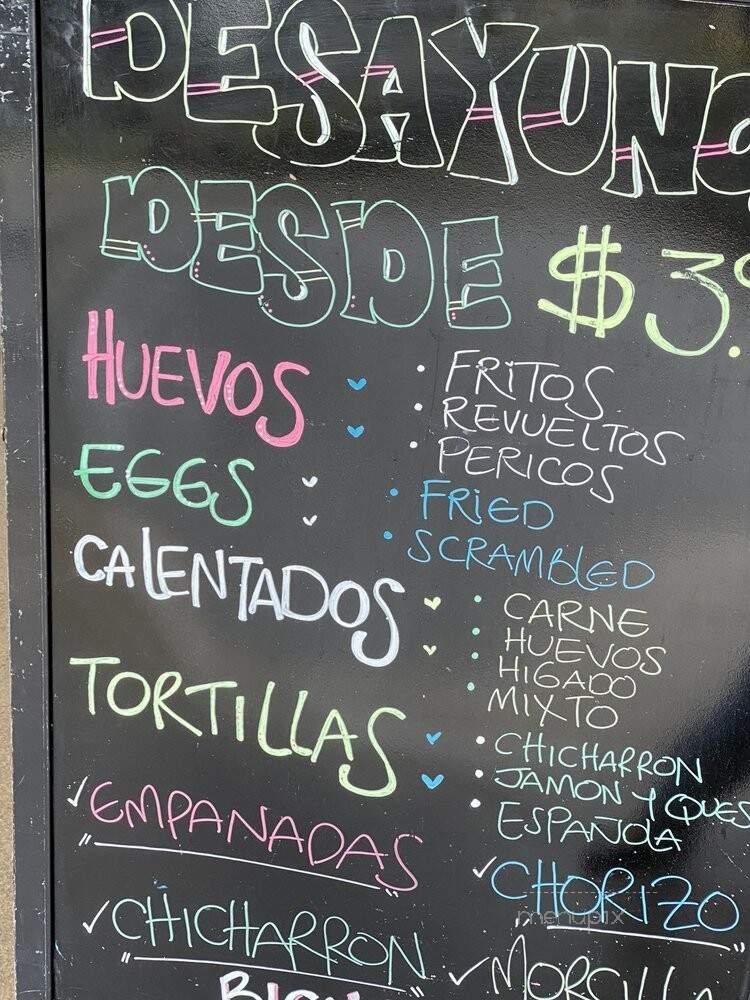 DESAYUNO
DESDE $3.9
HUEVOS
• FRITOS
• REVUELTOS
• PERICOS
EGGS
• FRIED
• SCRAMBLED
CALENTADOS
• CARNE
• HUEVOS
• HIGADO
• MIXTO
TORTILLAS
• CHICHARRON
• JAMON Y QUES
• ESPAÑOLA
✓ EMPANADAS
✓ CHORIZO
✓ CHICHARRON
✓ MORSILLA
menupix